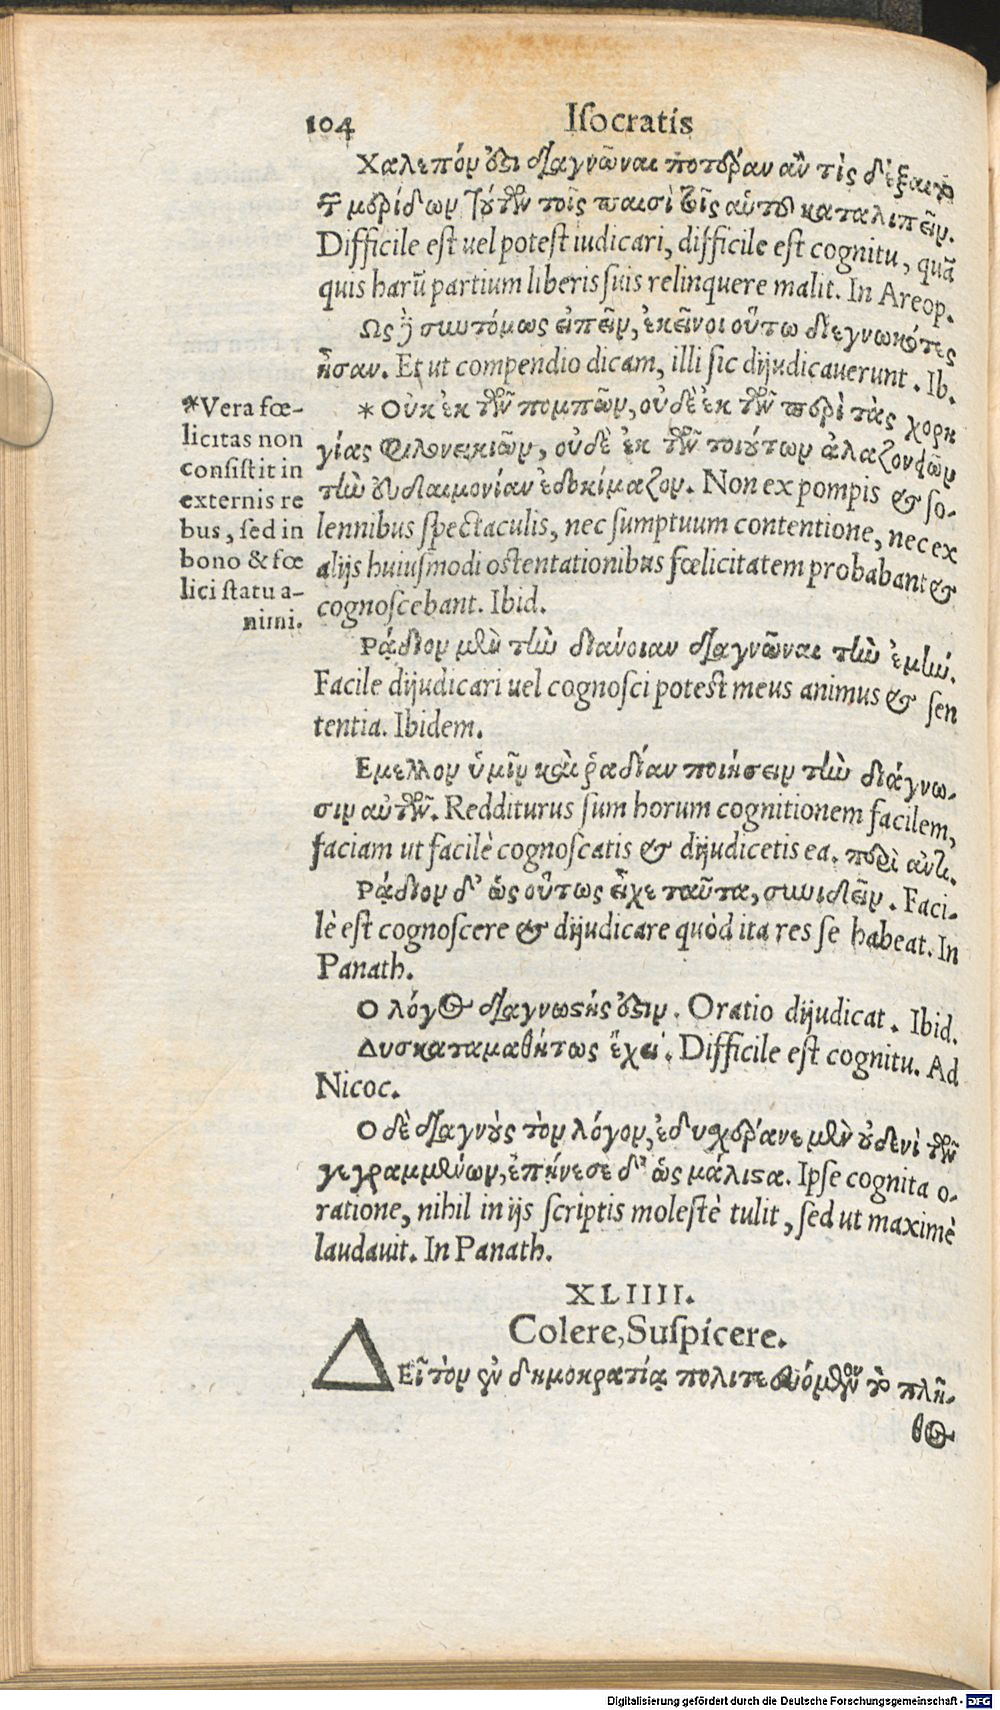 104 Iſocratis
Χαλεπόν ἐστι διαγνῶναι ποτέραν ἄν τις δέξαιτο
τ μερίδων τούτων τοῖς παισὶ τοῖς αὑτοῦ καταλιπεῖν.
Difficile eſt uel poteſt iudicari, difficile eſt cognitu, quã
quis harũ partium liberis ſuis relinquere malit. In Areop.
Ως δὲ συντόμως εἰπεῖν, ἐκεῖνοι οὕτω διεγνωκότες
ἦσαν. Et ut compendio dicam, illi ſic dijudicauerunt. Ib.
*Vera fœ-
licitas non
conſiſtit in
externis re
bus, ſed in
bono & fœ
lici ſtatu a-
nimi.
* Οὐκ ἐκ τῶν πομπῶν, οὐδὲ ἐκ τῶν περὶ τὰς χορη
γίας φιλονεικιῶν, οὐδὲ ἐκ τῶν τοιούτων ἀλαζονειῶν
τὴν εὐδαιμονίαν ἐδοκίμαζον. Non ex pompis & ſo-
lennibus ſpectaculis, nec ſumptuum contentione, nec ex
alijs huiuſmodi oſtentationibus fœlicitatem probabant &
cognoſcebant. Ibid.
Ρᾴδιον μὲν τὴν διάνοιαν διαγνῶναι τὴν ἐμήν.
Facile dijudicari uel cognoſci poteſt meus animus & ſen
tentia. Ibidem.
Εμελλον ὑμῖν καὶ ῥᾳδίαν ποιήσειν τὴν διάγνω-
σιν αὐτῶν. Redditurus ſum horum cognitionem facilem,
faciam ut facilè cognoſcatis & dijudicetis ea. περὶ ἀντι.
Ρᾴδιον δ' ὡς οὕτως εἶχε ταῦτα, συνιδεῖν. Faci-
lè eſt cognoſcere & dijudicare quòd ita res ſe habeat. In
Panath.
Ο λόγος διαγνωστής ἐστιν. Oratio dijudicat. Ibid.
Δυσκαταμαθήτως ἔχει. Difficile eſt cognitu. Ad
Nicoc.
Ο δὲ διαγνοὺς τὸν λόγον, ἐδυσχέρανε μὲν οὐδενὶ τῶν
γεγραμμένων, ἐπῄνεσε δ' ὡς μάλιστα. Ipſe cognita o-
ratione, nihil in ijs ſcriptis moleſtè tulit, ſed ut maximè
laudauit. In Panath.
XLIIII.
Colere, Suſpicere.
ΔΕῖ τὸν ἐν δημοκρατίᾳ πολιτευόμενον τὸ πλῆ-
θος
Digitalisierung gefördert durch die Deutsche Forschungsgemeinschaft - DFG